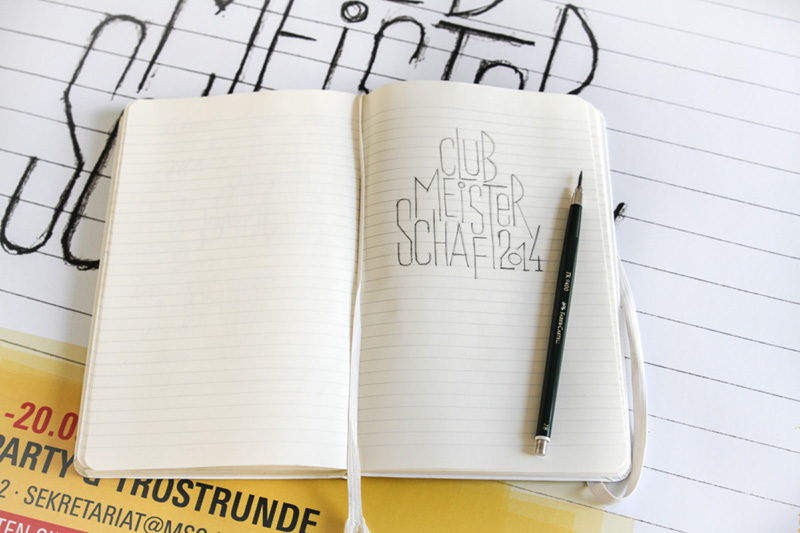 CLUB
MEISTER
SCHAFT 2014
TK 9400
FABER-CASTELL
-20.0
PARTY & TROSTRUNDE
2 · SEKRETARIAT@MSC